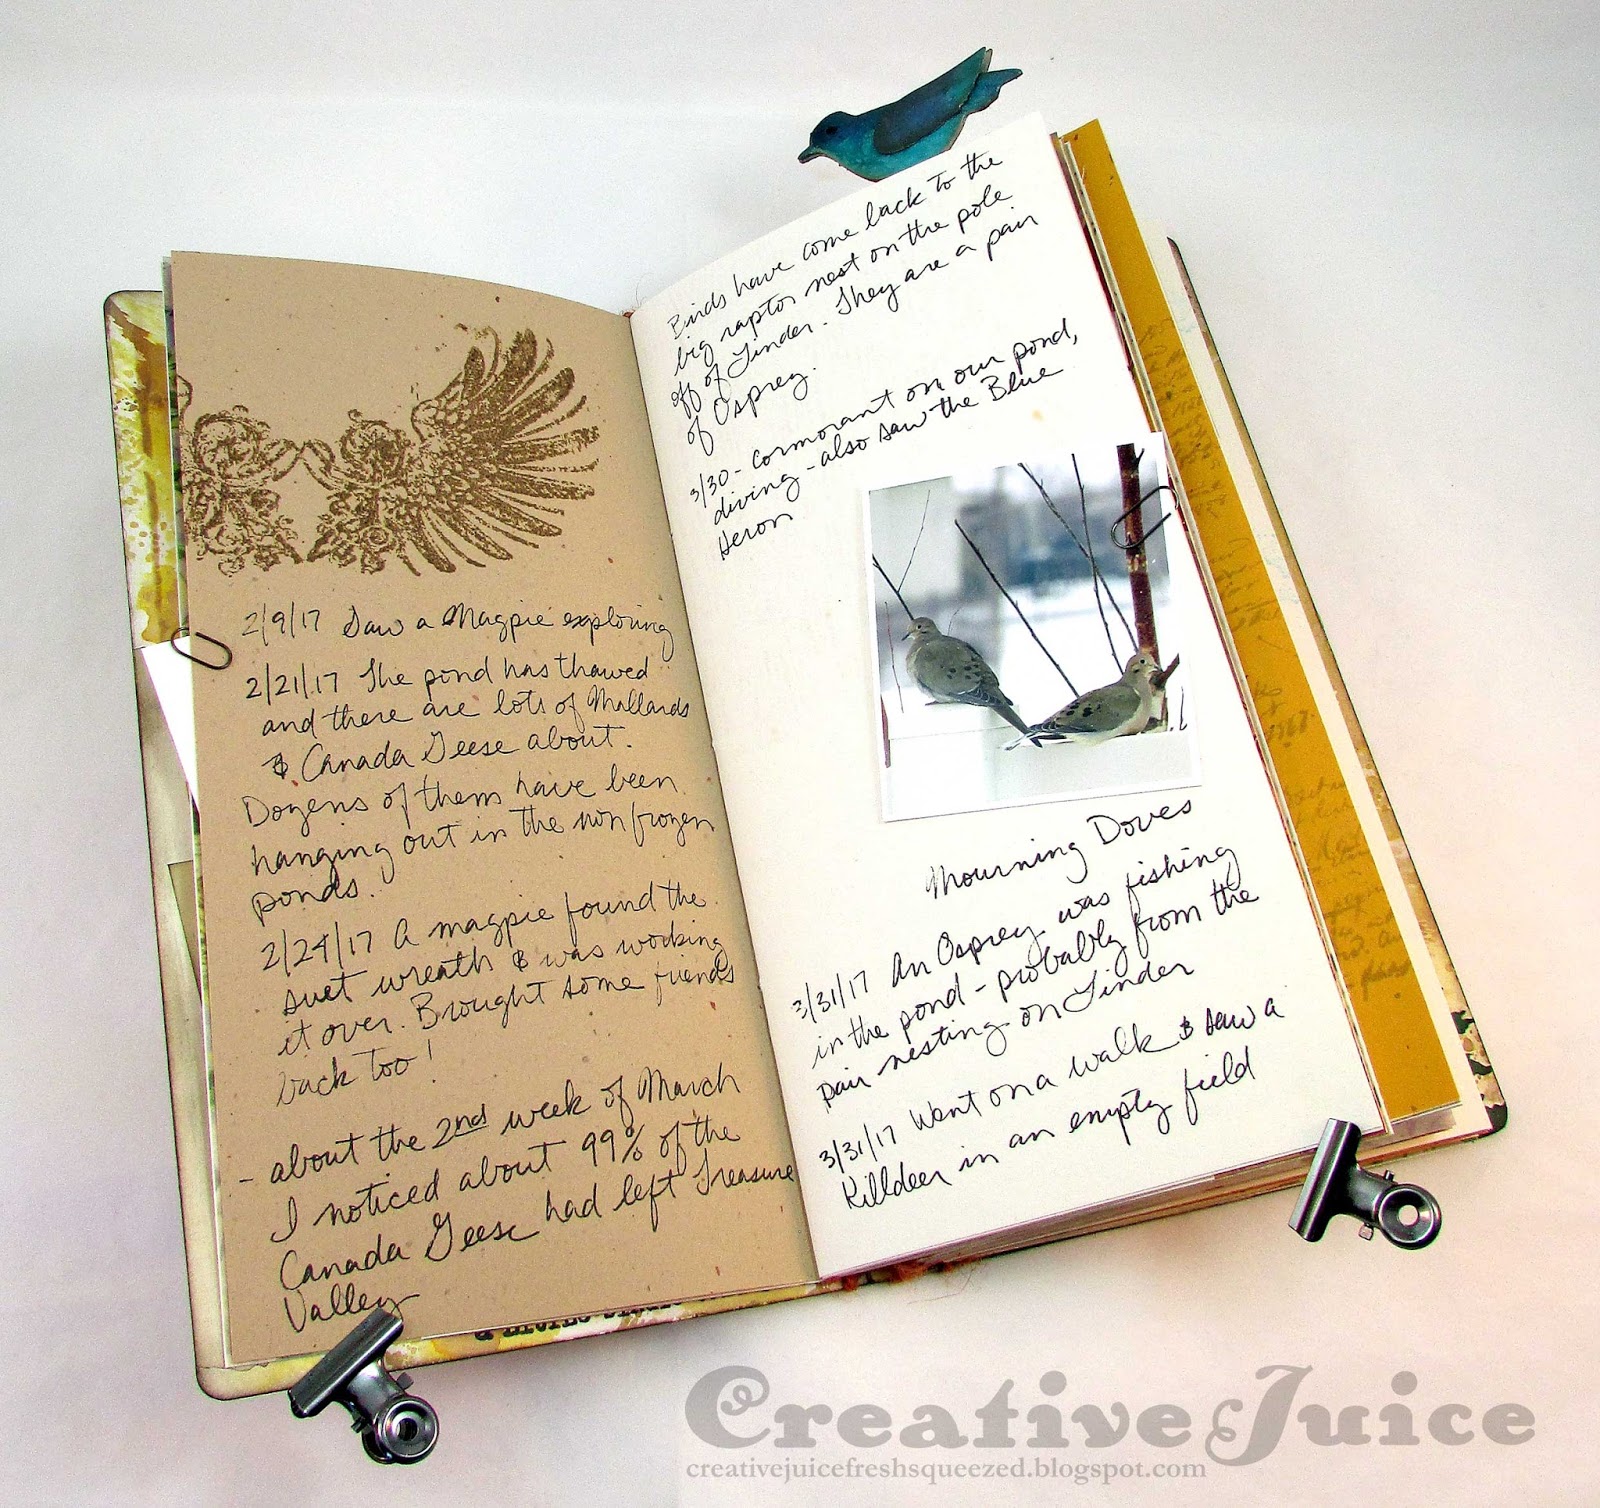 2/9/17 Saw a Magpie exploring
2/21/17 The pond has thawed
and there are lots of Mallards
& Canada Geese about.
Dozens of them have been
hanging out in the non frozen
ponds.
2/24/17 A magpie found the
suet wreath & was working
it over. Brought some friends
back too!
- about the 2nd week of March
I noticed about 99% of the
Canada Geese had left Treasure
Valley
Birds have come back to the
big raptor nest on the pole
off of Linder. They are a pair
of Osprey.
3/30 - Cormorant on our pond,
diving - also saw the Blue
Heron
Mourning Doves
3/31/17 An Osprey was fishing
in the pond - probably from the
pair nesting on Linder
3/31/17 Went on a walk & saw a
Killdeer in an empty field
Creative Juice
creativejuicefreshsqueezed.blogspot.com